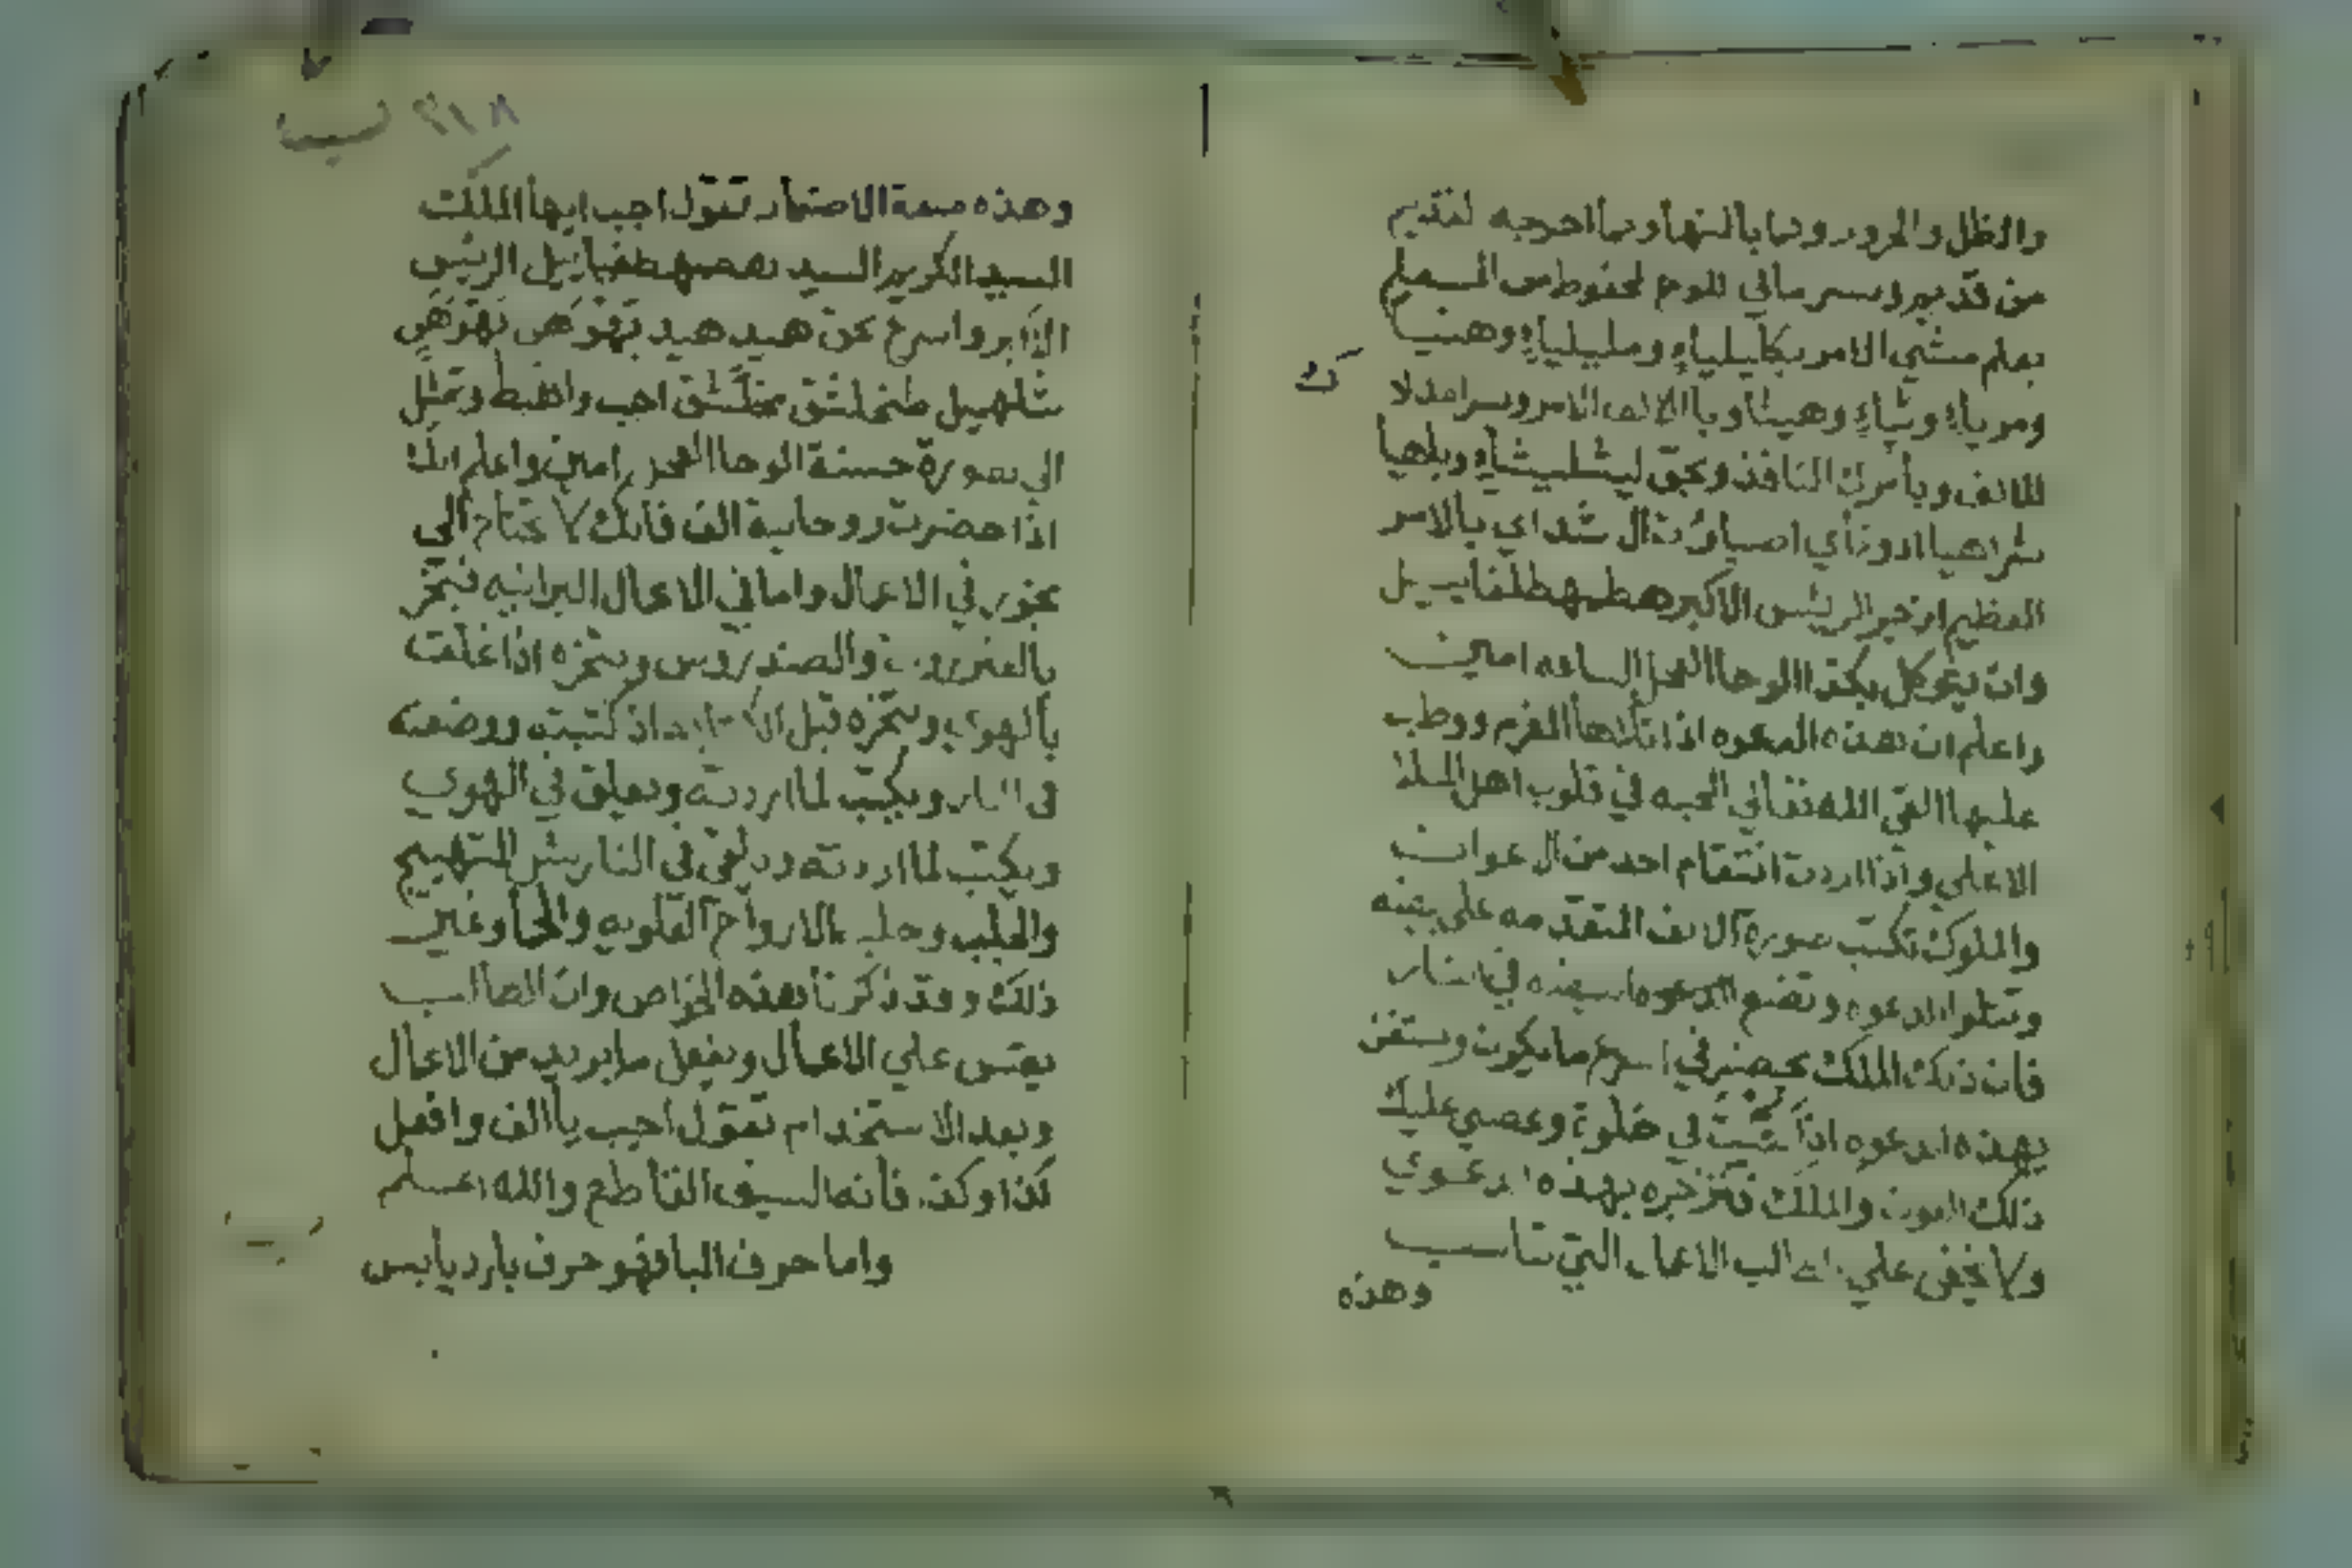 والظل والحرور وما بالنهار وما احوجبه لفتيم
من قد ير وبسر مافي اللوح لحفوط من
بعلم مشي الامر بكاليلياء ومليلياء وهيب
ومرياء وشاء وهيثا وبالالف الامر وسر
للالف وبأمرك النافذ وبحق ليشطيشاء وبلهيا
شراهيا ادوناي اصباوت ال شداي بالامر
العظيم ازجر الريئس الاكبر هطهطلفاييل
وان يتوكل بكذا الوحا العجل الساعه امين
واعلم ان هذه الدعوه اذا تلاها العزم ووظب
عليها القي الله تعالي المحبه في قلوب اهل الملا
الاعلي واذا اردت انتقام احد من الاعوان
والملوك تكتب صورة الالف المتقدمه علي
وتتلوا الدعوه وتضع الدعوه في النار
فان ذلك الملك يحضر في اسرع ما يكون
بهذه الدعوه اذا كنت في خلوة وعصي عليك
ذلك العون والملك فتزجره بهذه الدعوي
ولا يخفي علي الطالب الاعمال التي تناسب
وهذه
ك
٣١٨ ب
وهذه صفة الاضمار تقول اجب ايها الملك
السيد الكريم السيد الريئس
الاكبر واسرع بحق هيد هيد
شلهيل طخلشق اجب واهبط وتمثل
الي بصورة حسنة الوحا العجل امين واعلم انك
اذا حضرت روحانية الالف فانك لا تحتاج الي
بخور في الاعمال واما في الاعمال البرانيه فبخر
بالعنزروت والصندروس وتبخره اذا علقت
بالهوي وتبخره قبل الكتابه اذ كتبته ووضعته
في النار ويكتب لما اردته ويعلق في الهوي
ويكتب لما اردته ويلقي في النار بشر التهييج
والجلب وجلب الارواح العلويه والجا وغير
ذلك وقد ذكرنا هذه الخواص وان الطالب
يقيس علي الاعمال ويفعل ما يريد من الاعمال
وبعد الاستخدام تقول اجب يا الف وافعل
كذا وكذا فانه السيف القاطع والله اعلم
واما حرف البا فهو حرف بارد يابس